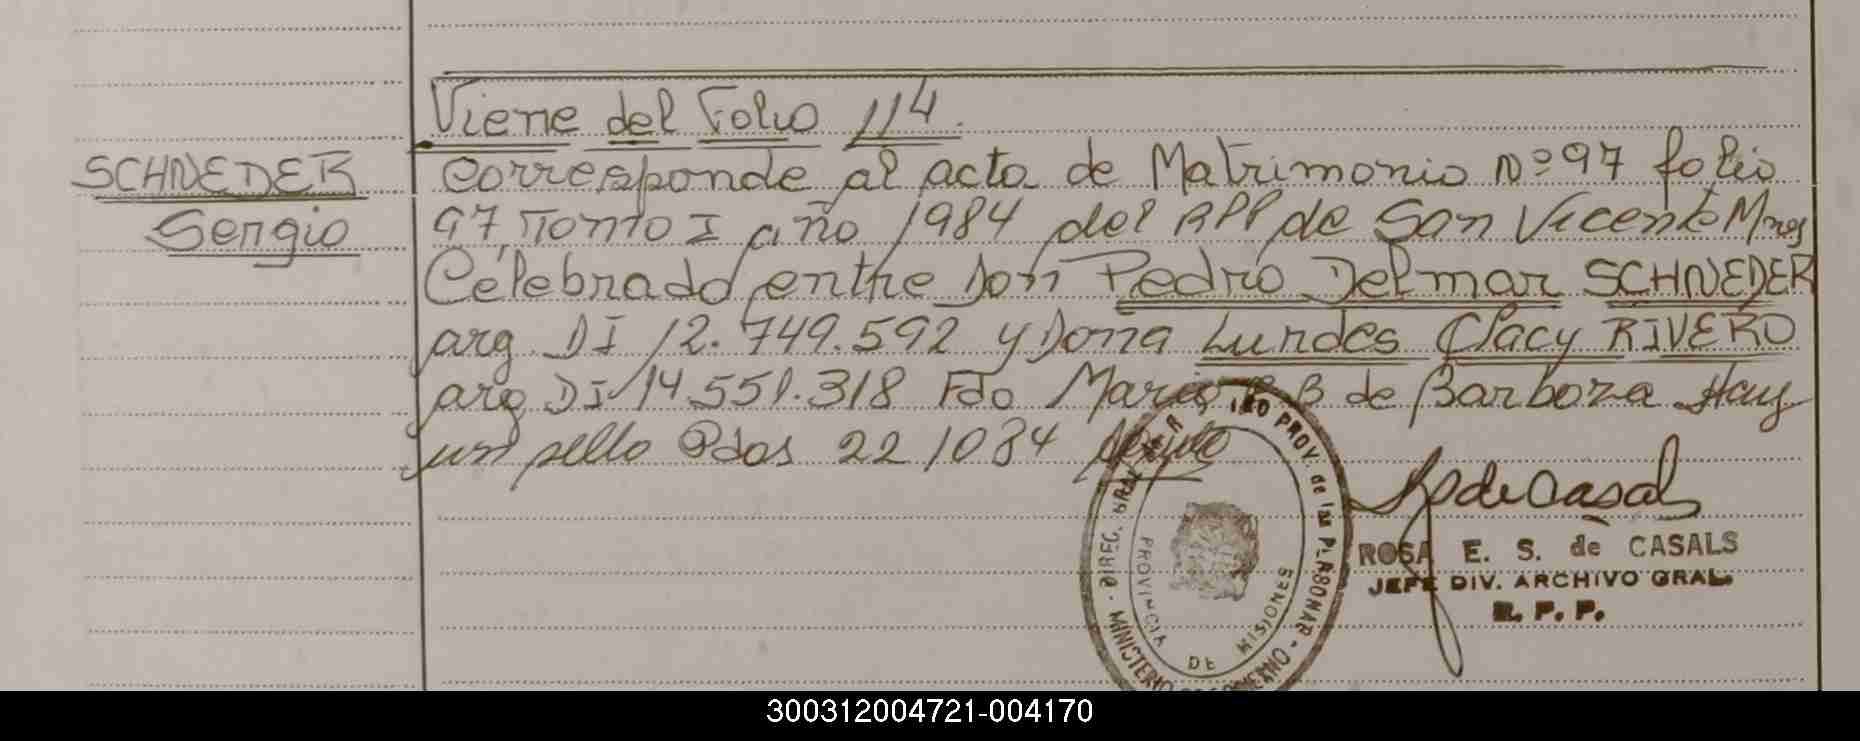 Viene del Folio 114.
SCHNEDER
Sergio
Corresponde al acta de Matrimonio Nº 97 folio
97 Tomo I año 1984 del RPP de San Vicente Mnes
Celebrado entre Don Pedro Delmar SCHNEDER
arg. DI 12.749.592 y Dona Lurdes Clacy RIVERO
arg DI 14.551.318 Fdo Maria B de Barboza Hay
un sello Pdas 22 1084
ROSA E. S. de CASALS
JEFE DIV. ARCHIVO GRAL.
R. P. P.
PROV. de las PERSONAS - MINISTERIO DE GOBIERNO - DIREC. GRAL.
PROVINCIA DE MISIONES
300312004721-004170